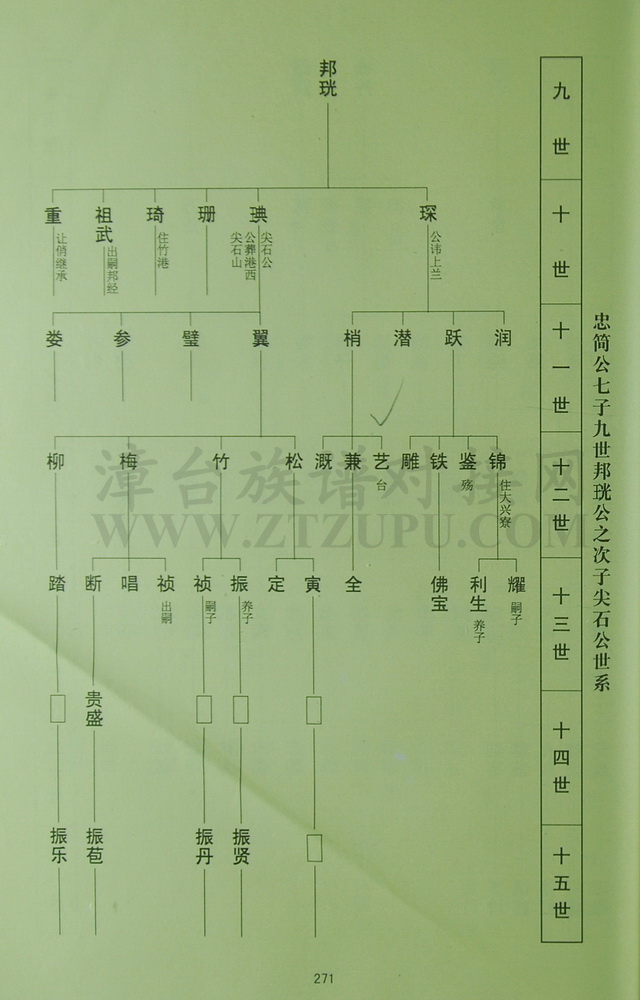 忠简公七子九世邦珖公之次子尖石公世系
九世
邦珖
十世
琛
公讳上兰
琠
尖石公
公葬港西
尖石山
珊
琦
住竹港
祖武
出嗣邦经
重
让俏继承
十一世
润
跃
潜
梢
翼
璧
参
娄
十二世
锦
住大兴寮
鉴
殇
铁
雕
艺
台
兼
溉
松
竹
梅
柳
十三世
耀
嗣子
利生
养子
佛宝
全
寅
定
振
养子
祯
嗣子
祯
出嗣
唱
断
踏
十四世
贵盛
十五世
振贤
振丹
振苞
振乐
漳台族谱对接网
WWW.ZTZUPU.COM
271